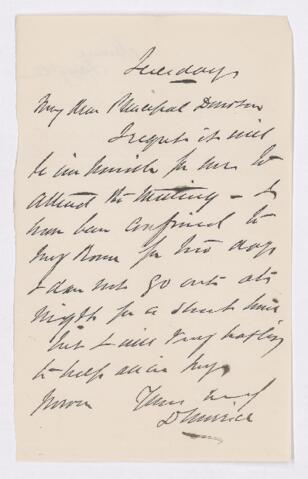 Tuesday
My dear Principal Dawson
I regret it will
be impossible for me to
attend the Meeting - I
have been confined to
my Room for two days
& dare not go out at
night for a short time
but I will very
to help all in my
power Yours truly